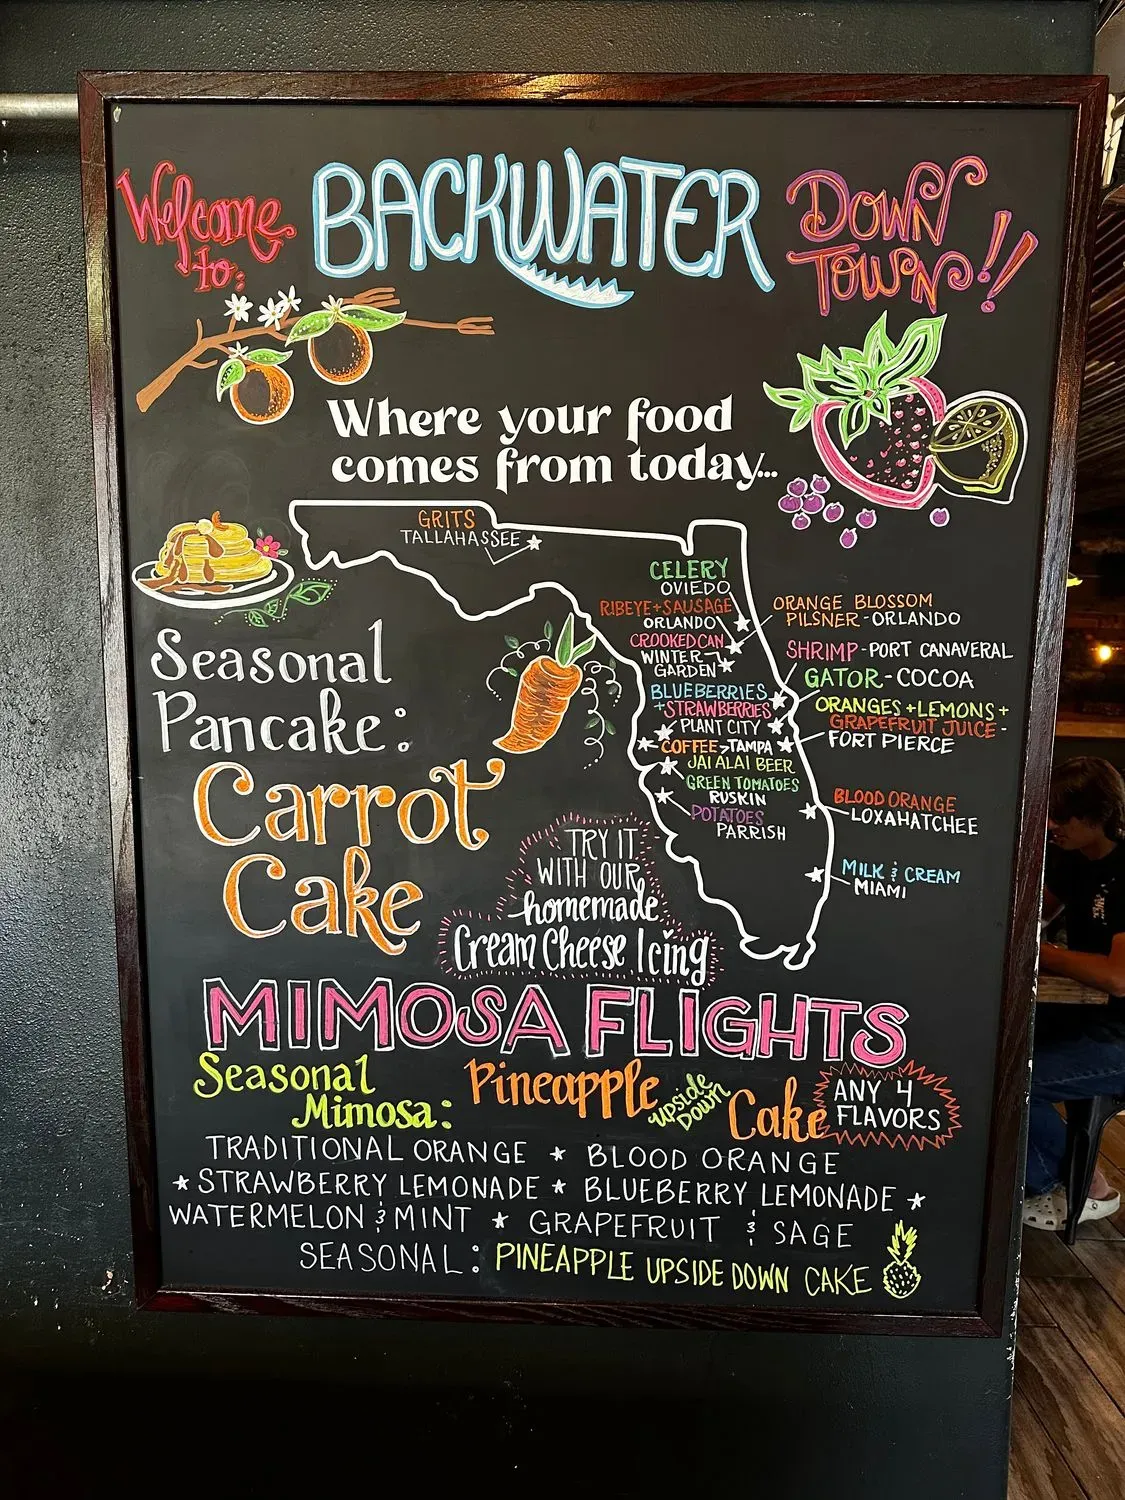 Welcome to:
BACKWATER
DOWN TOWN!!
Where your food
comes from today...
GRITS
TALLAHASSEE
CELERY
OVIEDO
RIBEYE+SAUSAGE
ORLANDO
CROOKED CAN
WINTER
GARDEN
BLUEBERRIES
+STRAWBERRIES
PLANT CITY
COFFEE TAMPA
JAI ALAI BEER
GREEN TOMATOES
RUSKIN
POTATOES
PARRISH
ORANGE BLOSSOM
PILSNER-ORLANDO
SHRIMP-PORT CANAVERAL
GATOR-COCOA
ORANGES+LEMONS+
GRAPEFRUIT JUICE-
FORT PIERCE
BLOOD ORANGE
LOXAHATCHEE
MILK & CREAM
MIAMI
Seasonal
Pancake:
Carrot
Cake
TRY IT
WITH OUR
homemade
Cream Cheese Icing
MIMOSA FLIGHTS
Seasonal
Mimosa:
Pineapple upside down Cake
ANY 4
FLAVORS
TRADITIONAL ORANGE * BLOOD ORANGE
* STRAWBERRY LEMONADE * BLUEBERRY LEMONADE *
WATERMELON & MINT * GRAPEFRUIT & SAGE
SEASONAL: PINEAPPLE UPSIDE DOWN CAKE